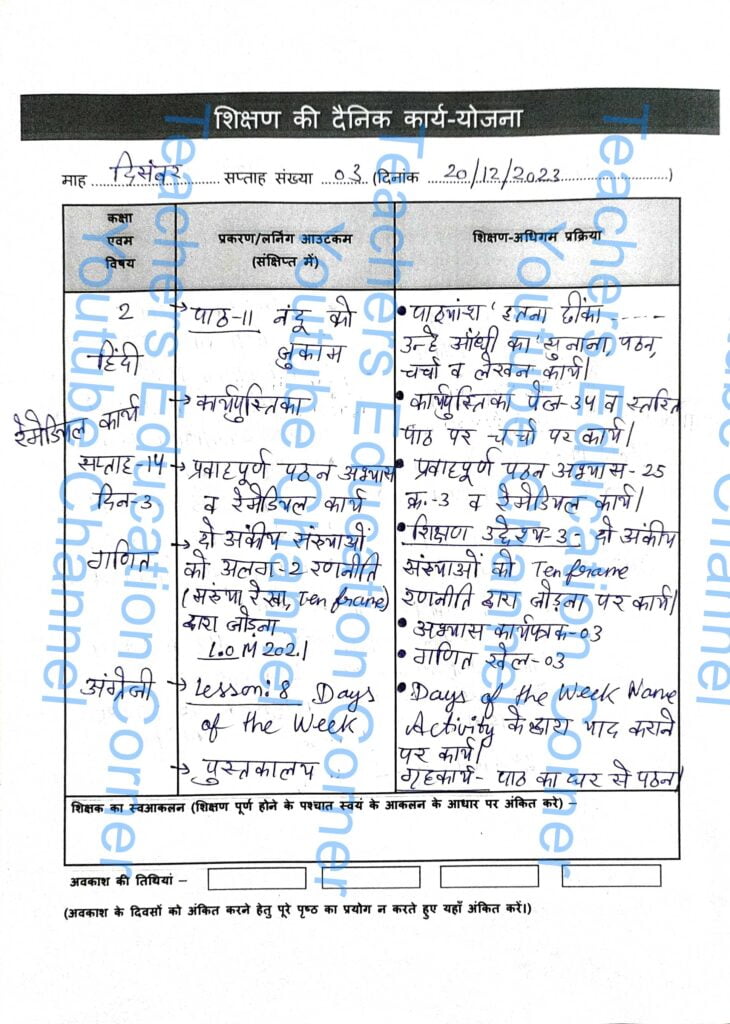 शिक्षण की दैनिक कार्य-योजना
माह ......दिसंबर...... सप्ताह संख्या ..03.. (दिनांक ..20/12/2023..................)
कक्षा एवम विषय
प्रकरण/लर्निंग आउटकम (संक्षिप्त में)
शिक्षण-अधिगम प्रक्रिया
2
हिंदी
→ पाठ-11 नंदू को
जुकाम
• पाठ्यांश 'इतना छींका -----
उन्हे आंधी का' सुनाना, पठन,
चर्चा व लेखन कार्य।
→ कार्यपुस्तिका
• कार्यपुस्तिका पेज-34 व स्तरित
पाठ पर चर्चा पर कार्य।
रेमेडियल कार्य
सप्ताह-14
दिन-3
→ प्रवाहपूर्ण पठन अभ्यास
व रेमेडियल कार्य
• प्रवाहपूर्ण पठन अभ्यास-25
क्र.-3 व रेमेडियल कार्य।
गणित
→ दो अंकीय संख्याओं
को अलग-2 रणनीति
(संख्या रेखा, Ten frame)
द्वारा जोड़ना
L.O M202.1
• शिक्षण उद्देश्य-3- दो अंकीय
संख्याओं को Ten frame
रणनीति द्वारा जोड़ना पर कार्य।
• अभ्यास कार्यपत्रक-03
• गणित खेल-03
अंग्रेजी
→ Lesson: 8 Days
of the Week
• Days of the Week Name
Activity के द्वारा याद कराने
पर कार्य।
→ पुस्तकालय
गृहकार्य- पाठ का घर से पठन।
शिक्षक का स्वआकलन (शिक्षण पूर्ण होने के पश्चात स्वयं के आकलन के आधार पर अंकित करे) –
अवकाश की तिथियां –
(अवकाश के दिवसों को अंकित करने हेतु पूरे पृष्ठ का प्रयोग न करते हुए यहाँ अंकित करें।)
Teachers Education Corner
Youtube Channel
Teachers Education Corner
Youtube Channel
Teachers Education Corner
Youtube Channel